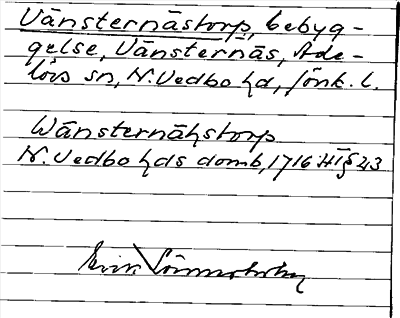 Vänsternästorp, bebyg-
gelse, Vänsternäs, Ade-
löv sn, N. Vedbo hd, Jönk. l.
Wänsternähstorp
N. Vedbo hds domb, 1716 HT § 43
Erik